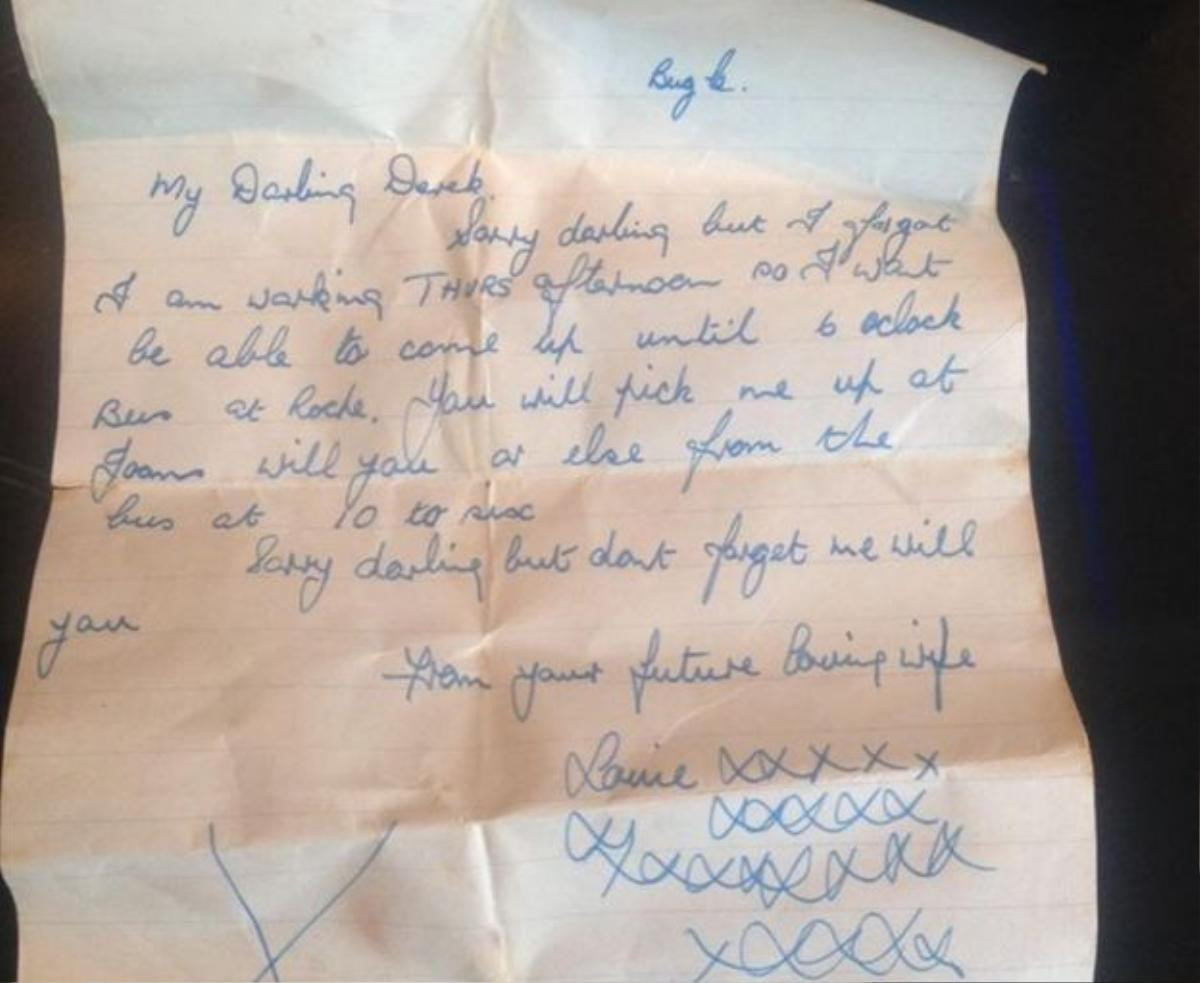 Bugle.
My Darling Derek.
Sorry darling but I forgot
I am working THURS afternoon so I want
be able to come up until 6 oclock
Bus at Roche. You will pick me up at
Joans will you or else from the
bus at 10 to six
Sorry darling but dont forget me will
you
From your future loving wife
xxxxx
xxxxx
xxxxxxxxx
xxxxx
X